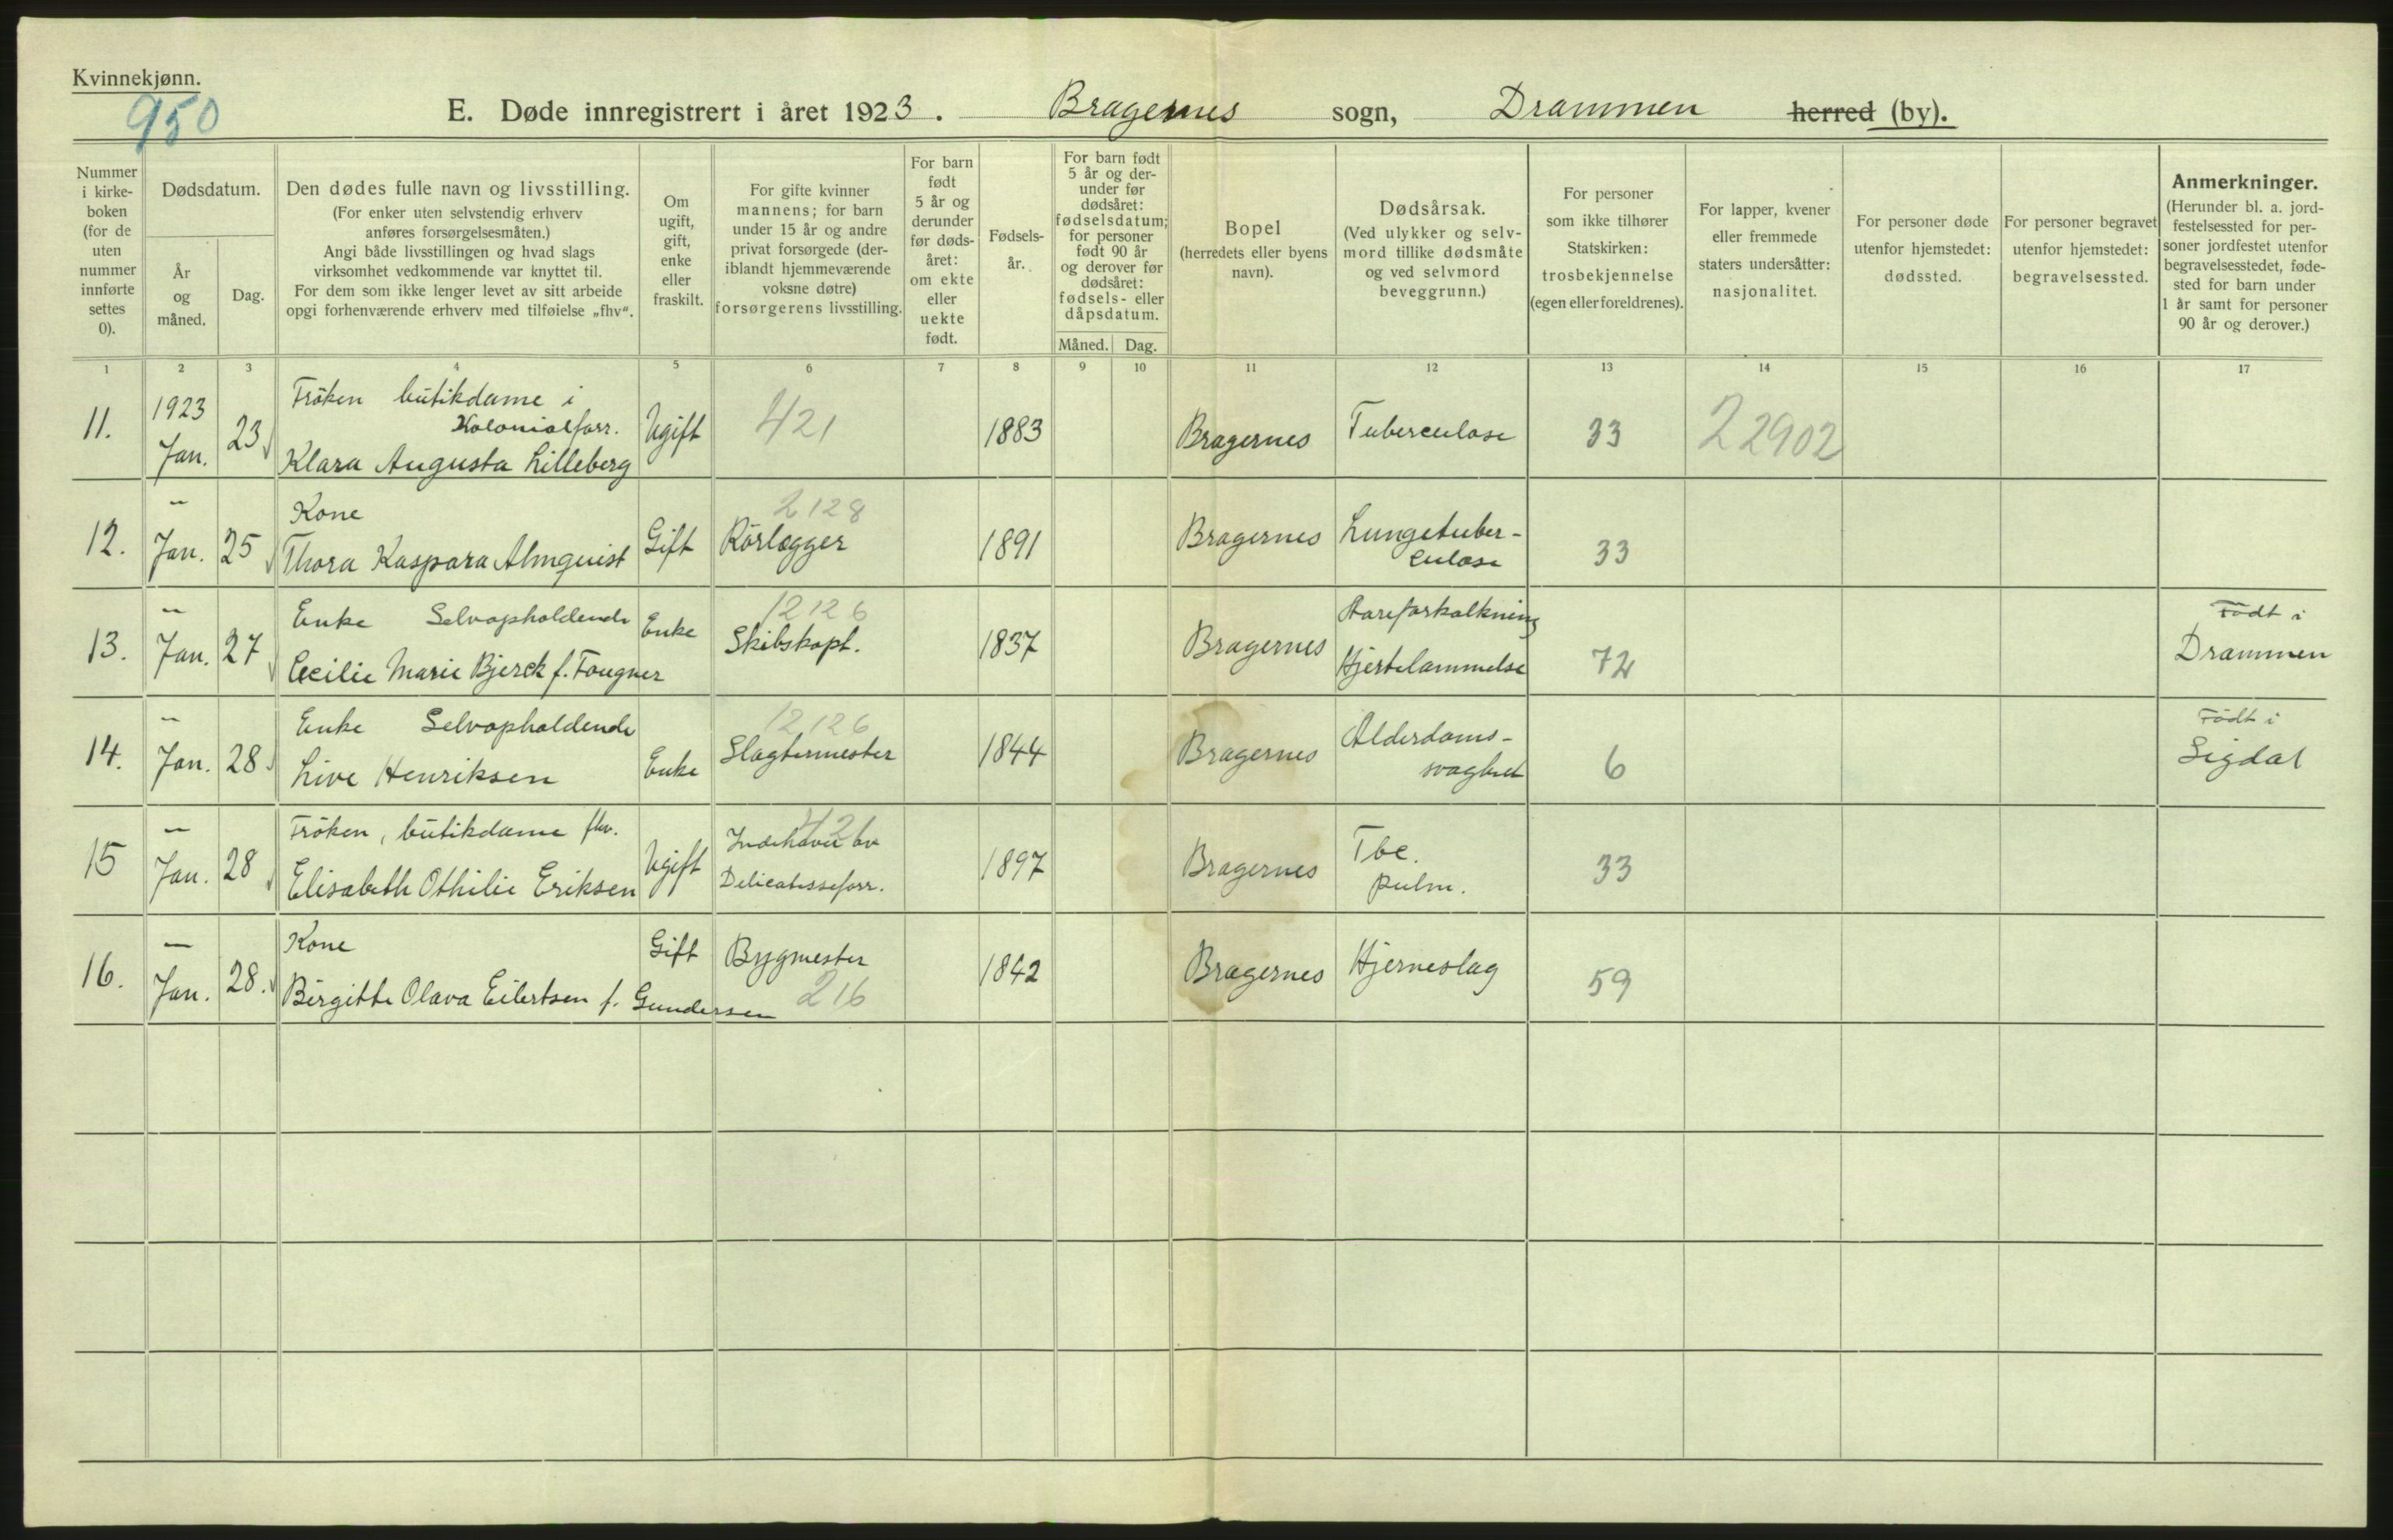 Kvinnekjønn.
950
E. Døde innregistrert i året 1923. Bragernes sogn, Drammen herred (by).
Nummer i kirke-
boken
(for de
uten
nummer
innførte
settes
0).
Dødsdatum.
År
og
måned.
Dag.
Den dødes fulle navn og livsstilling.
(For enker uten selvstendig erhverv
anføres forsørgelsesmåten.)
Angi både livsstillingen og hvad slags
virksomhet vedkommende var knyttet til.
For dem som ikke lenger levet av sitt arbeide
opgi forhenværende erhverv med tilføielse „fhv“.
Om
ugift,
gift,
enke
eller
fraskilt.
For gifte kvinner
mannens; for barn
under 15 år og andre
privat forsørgede (der-
iblandt hjemmeværende
voksne døtre)
forsørgerens livsstilling.
For barn
født
5 år og
derunder
før døds-
året:
om ekte
eller
uekte
født.
Fødsels-
år.
For barn født
5 år og der-
under før
dødsåret:
fødselsdatum;
for personer
født 90 år
og derover før
dødsåret:
fødsels- eller
dåpsdatum.
Måned. Dag.
Bopel
(herredets eller byens
navn).
Dødsårsak.
(Ved ulykker og selv-
mord tillike dødsmåte
og ved selvmord
beveggrunn.)
For personer
som ikke tilhører
Statskirken:
trosbekjennelse
(egen eller foreldrenes).
For lapper, kvener
eller fremmede
staters undersåtter:
nasjonalitet.
For personer døde
utenfor hjemstedet:
dødssted.
For personer begravet
utenfor hjemstedet:
begravelsessted.
Anmerkninger.
(Herunder bl. a. jord-
festelsessted for per-
soner jordfestet utenfor
begravelsesstedet, føde-
sted for barn under
1 år samt for personer
90 år og derover.)
1 2 3 4 5 6 7 8 9 10 11 12 13 14 15 16 17
11. 1923 Jan. 23 Fröken butikdame i
Kolonialforr.
Klara Augusta Lilleberg Ugift 421 1883 Bragernes Tuberculose 33 22902
12. " Jan. 25 Kone
Thora Kaspara Almquist Gift 2128
Rörlægger 1891 Bragernes Lungetuber-
culose 33
13. " Jan. 27 Enke Selvopholdende
Cecilie Marie Bjerck f. Fougner Enke 12126
Skibskapt. 1837 Bragernes Aareforkalkning
Hjertelammelse 72 Födt i
Drammen
14. " Jan. 28 Enke Selvopholdende
Live Henriksen Enke 12126
Slagtermester 1844 Bragernes Alderdoms-
svaghed 6 Födt i
Sigdal
15 — Jan. 28 Fröken, butikdame fhv.
Elisabeth Othilie Eriksen Ugift 421
Indehaver av
Delicatesseforr. 1897 Bragernes Tbc.
pulm. 33
16. — Jan. 28. Kone
Birgitte Olava Eilertsen f. Gundersen Gift Bygmester
216 1842 Bragernes Hjerneslag 59